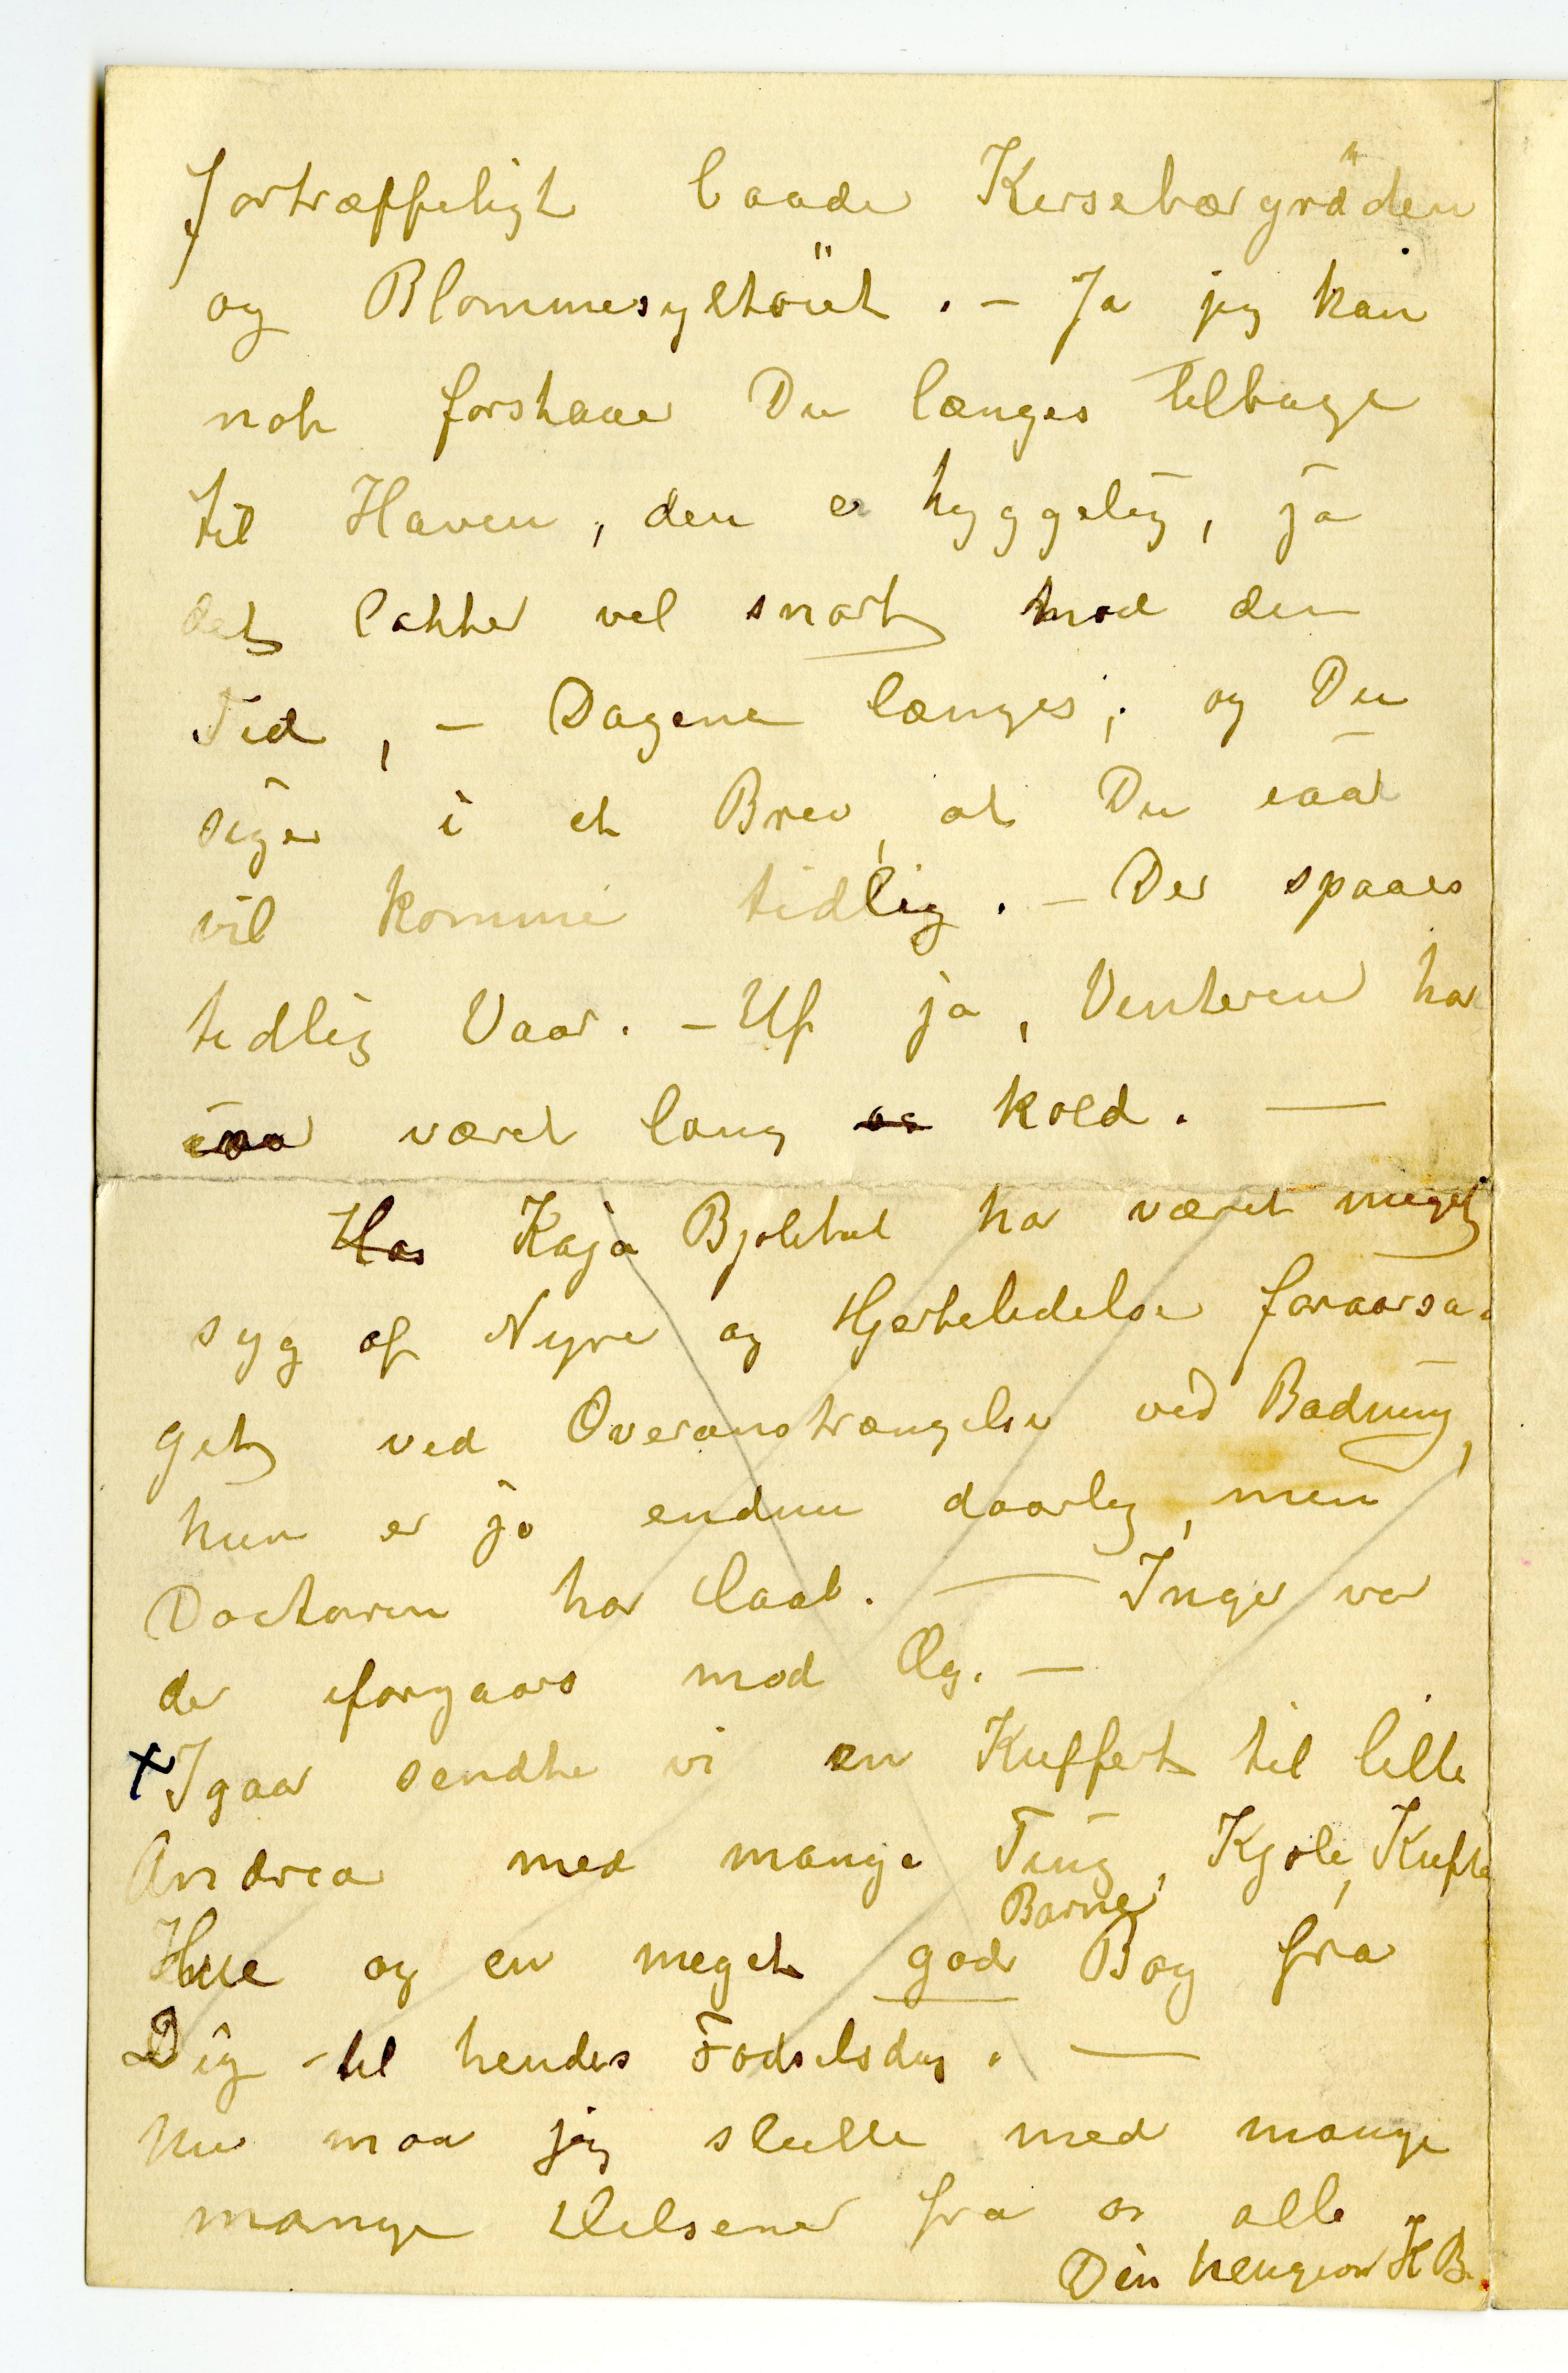 fortræffeligt baade Kirsebærgröden
og Blommesyltöiet. – Ja jeg kan
nok forstaae Du længes tilbage
til Haven, den er hyggelig, ja
det lakker vel snart mod den
Tid, – Dagene længes; og Du
siger i et Brev, at Du iaar
vil komme tidlig. – Der spaaes
tidlig Vaar. – Uf ja, Vinteren har
iaar været lang og kold. —
Hos Kaja Bjølstad har været meget
syg af Nyre og Hjertelidelse foraarsa-
get ved Overanstrængelse ved Badning,
hun er jo endnu daarlig, men
Doctoren har Haab. — Inger var
der iforgaars med Æg. —
+ Igaar sendte vi en Kuffert til lille
Andrea med mange Ting, Kjole, Kufte
Hue og en meget god Barne Bog fra
Dig – til hendes Fødselsdag. —
Nu maa jeg slutte med mange
mange Hilsener fra os alle
Din hengivne K B.